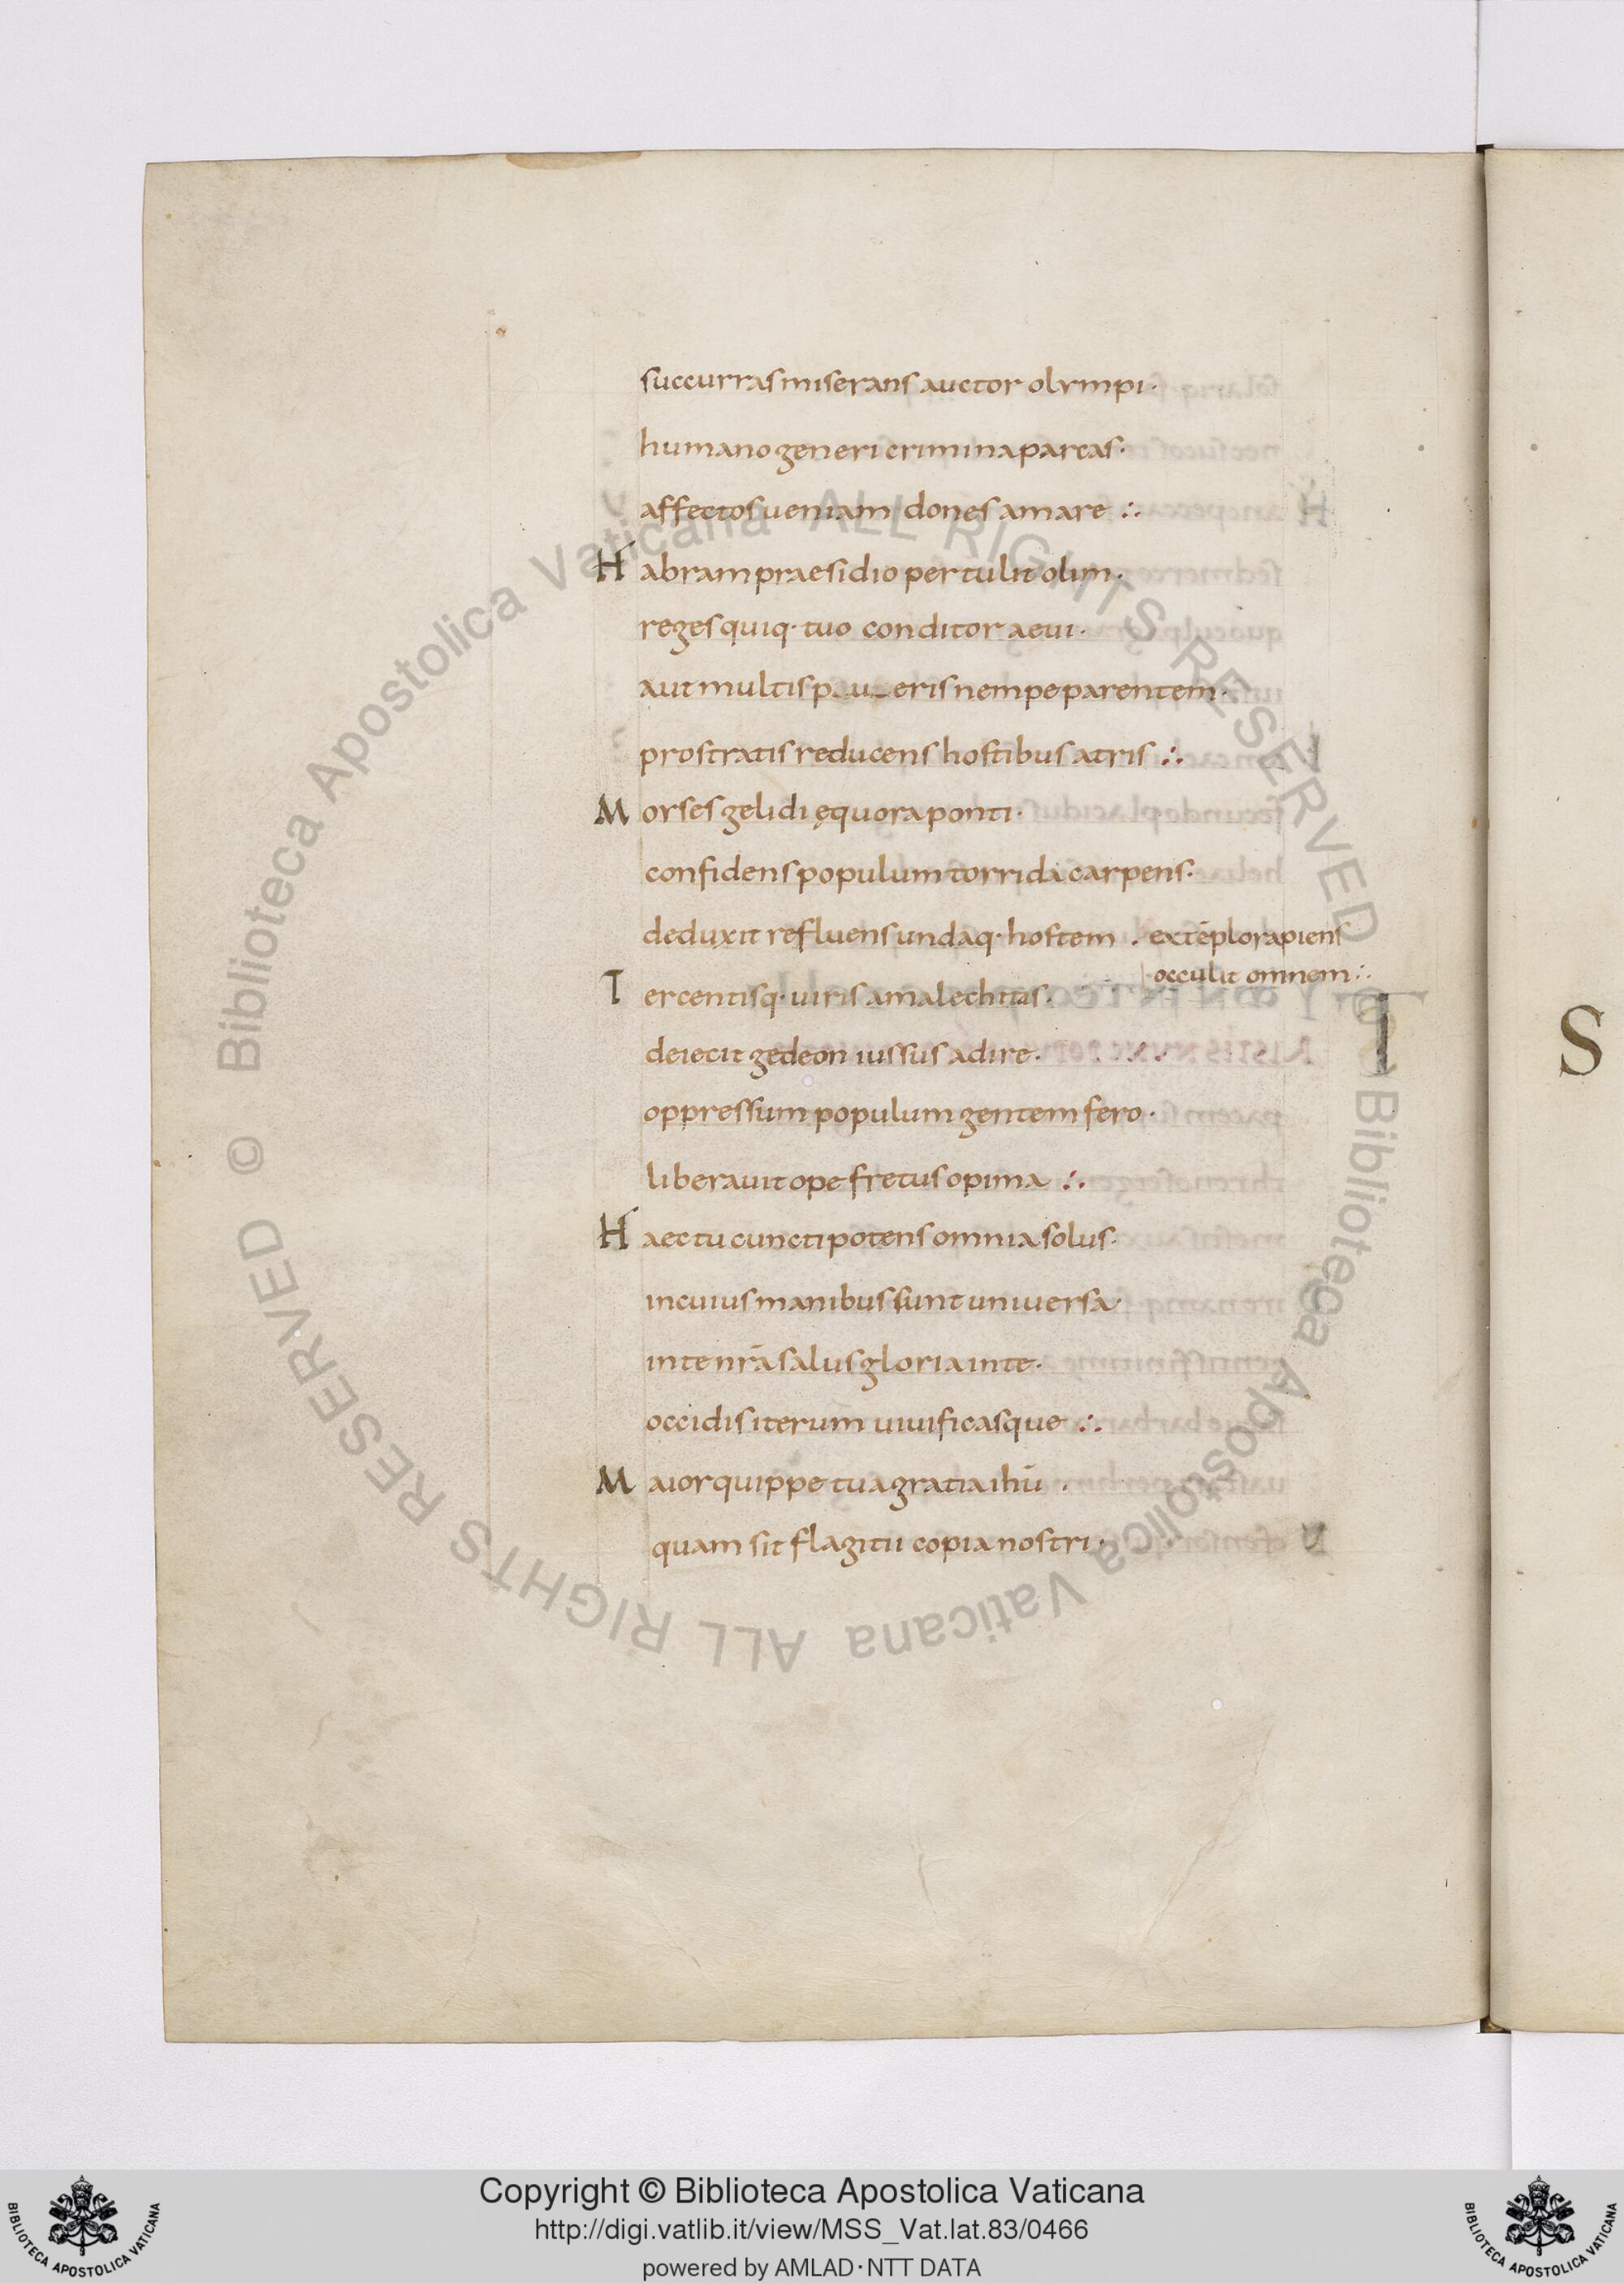 succurras miserans auctor olympi·
humano generi crimina parcas·
affectos ueniam dones amare ∴
Habram praesidio pertulit olim·
reges quiq· tuo conditor aeui·
aut multis eris nempe parentem·
prostratis reducens hostibus atris ∴
Morses gelidi ęquora ponti·
confidens populum torrida carpens·
deduxit refluens undaq· hostem · extēplo rapiens
occulit omnem ∴
Tercentisq· uiris amalechitas·
deiecit gedeon iussus adire·
oppressum populum gentem fero·
liberauit ope fretus opima ∴
Haec tu cuncti potens omnia solus·
in cuius manibus sunt uniuersa·
in te nr̄a salus gloria in te·
occidis iterum uiuificasque ∴
Maior quippe tua gratia ihū ·
quam sit flagitii copia nostri·
S
Copyright © Biblioteca Apostolica Vaticana
http://digi.vatlib.it/view/MSS_Vat.lat.83/0466
powered by AMLAD·NTT DATA
BIBLIOTECA APOSTOLICA VATICANA
BIBLIOTECA APOSTOLICA VATICANA
© Biblioteca Apostolica Vaticana ALL RIGHTS RESERVED
© Biblioteca Apostolica Vaticana ALL RIGHTS RESERVED